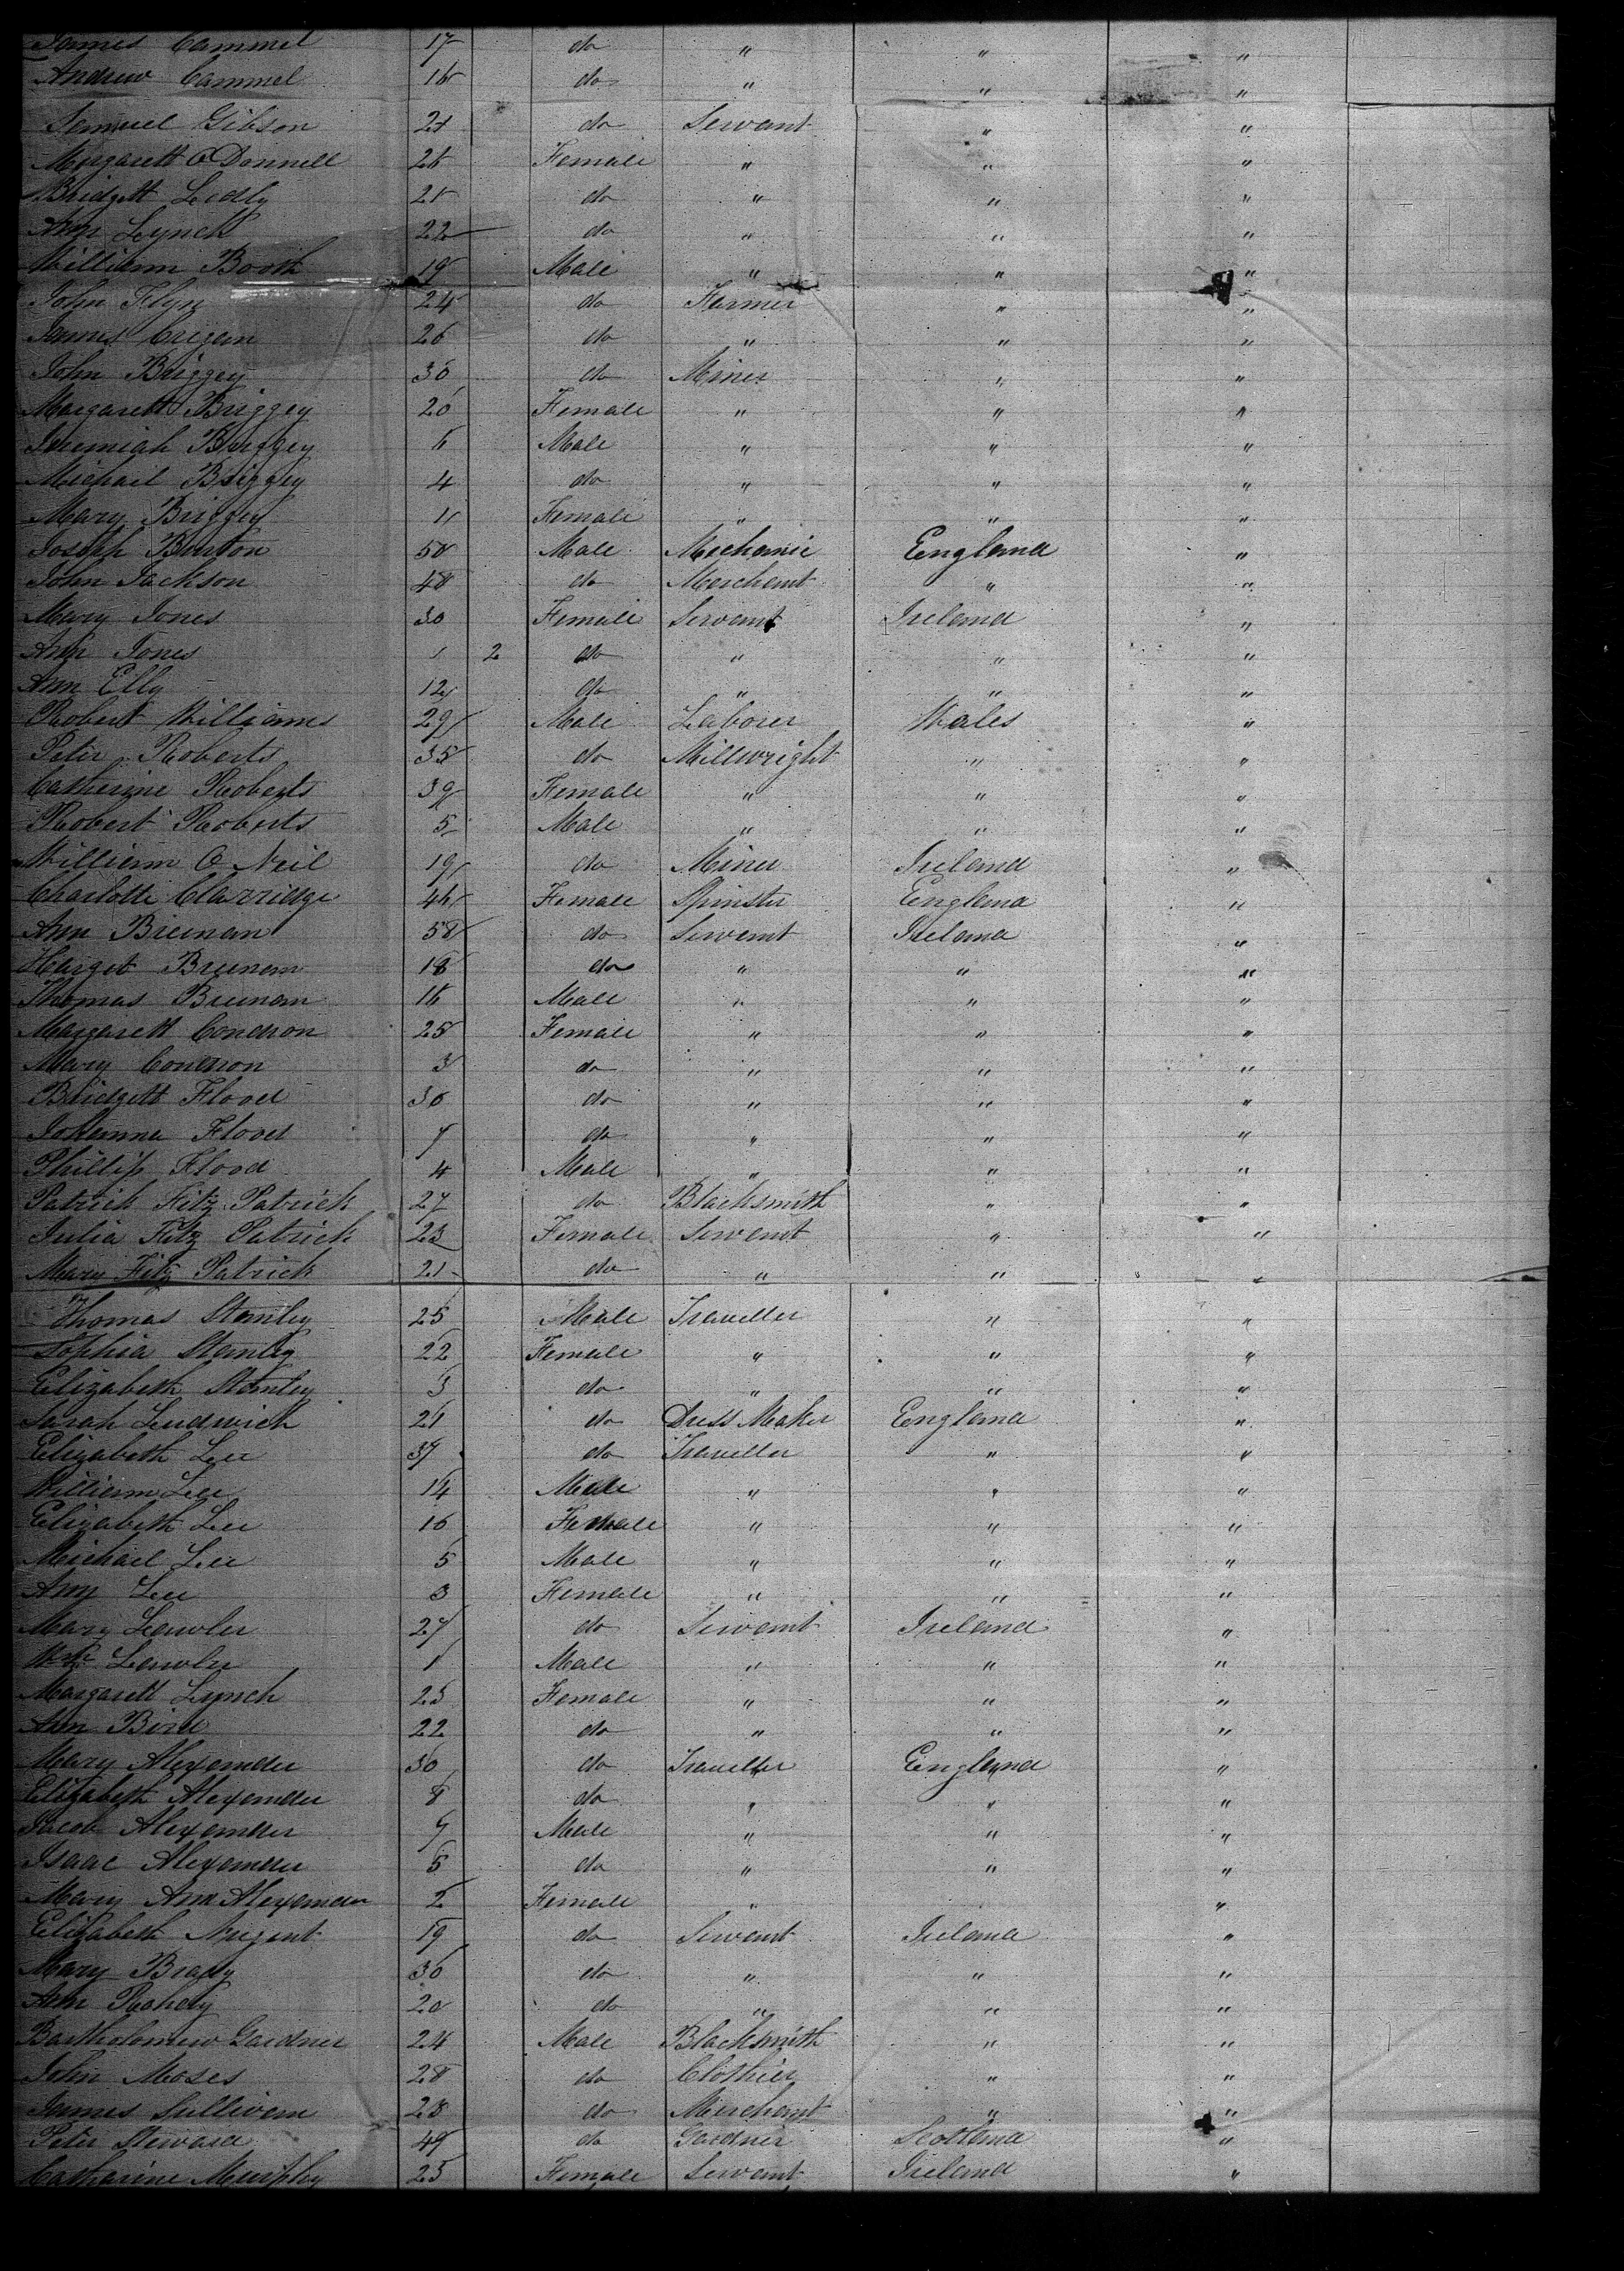 James Cammel 17 do " " "
Andrew Cammel 16 do " " "
Samuel Gibson 21 do Servant " "
Margarett O Donnell 26 Female " " "
Bridgett Ledly 21 do " " "
Ann Lynch 22 do " " "
William Booth 19 Male " " "
John Flyn 24 do Farmer " "
James Crigan 26 do " " "
John Briggey 30 do Miner " "
Margarett Briggey 26 Female " " "
Jeremiah Briggey 6 Male " " "
Michail Briggey 4 do " " "
Mary Briggey 11 Female " " "
Joseph Burton 58 Male Mechanic England "
John Jackson 48 do Merchant " "
Mary Jones 30 Female Servant Ireland "
Ann Jones 1 2 do " " "
Ann Elly 12 do " " "
Robert Williams 29 Male Laborer Wales "
Peter Roberts 35 do Millwright " "
Catherine Roberts 39 Female " " "
Robert Roberts 5 Male " " "
William O Neil 19 do Miner Ireland "
Charlotte Clarridge 46 Female Spinster England "
Ann Brienan 58 do Servant Ireland "
Brienan 18 do " " "
Thomas Brienan 16 Male " " "
Margarett Condron 25 Female " " "
Mary Condron 3 do " " "
Bridgett Flood 30 do " " "
Johanna Flood 7 do " " "
Phillip Flood 4 Male " " "
Patrick Fitz Patrick 27 do Blacksmith " "
Julia Fitz Patrick 23 Female Servant " "
Mary Fitz Patrick 21 do " " "
Thomas Stanley 25 Male Traveller " "
Sophia Stanley 22 Female " " "
Elizabeth Stanley 3 do " " "
Sarah Ludwick 21 do Dress Maker England "
Elizabeth Lee 37 do Traveller " "
William Lee 14 Male " " "
Elizabeth Lee 10 Female " " "
Michael Lee 5 Male " " "
Ann Lee 3 Female " " "
Mary Lawler 27 do Servant Ireland "
Wm Lawler 1 Male " " "
Margarett Lynch 25 Female " " "
Ann Bird 22 do " " "
Mary Alexander 30 do Traveller England "
Elizabeth Alexander 8 do " " "
Jacob Alexander 7 Male " " "
Isaac Alexander 5 do " " "
Mary Ann Alexander 2 Female " "
Elizabeth Nugent 19 do Servant Ireland "
Mary Brady 30 do " " "
Ann 20 do " " "
Bartholomew Gardner 24 Male Blacksmith " "
John Moses 28 do Clothier " "
James Sullivan 28 do Merchant " "
Peter Steward 49 do Gardner Scotland "
Catharine Murphy 25 Female Servant Ireland "